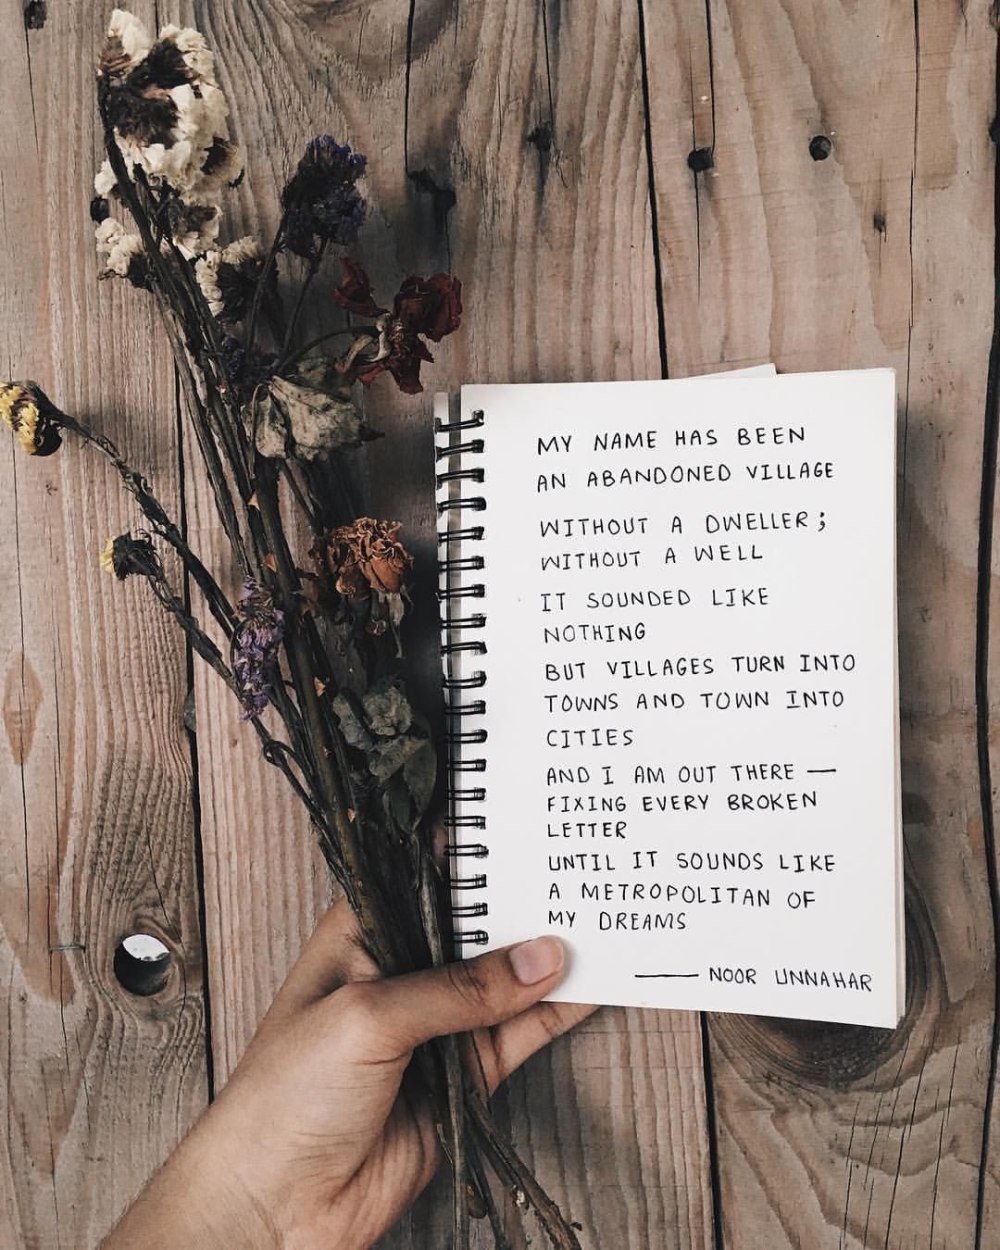 MY NAME HAS BEEN
AN ABANDONED VILLAGE
WITHOUT A DWELLER;
WITHOUT A WELL
IT SOUNDED LIKE
NOTHING
BUT VILLAGES TURN INTO
TOWNS AND TOWN INTO
CITIES
AND I AM OUT THERE —
FIXING EVERY BROKEN
LETTER
UNTIL IT SOUNDS LIKE
A METROPOLITAN OF
MY DREAMS
— NOOR UNNAHAR